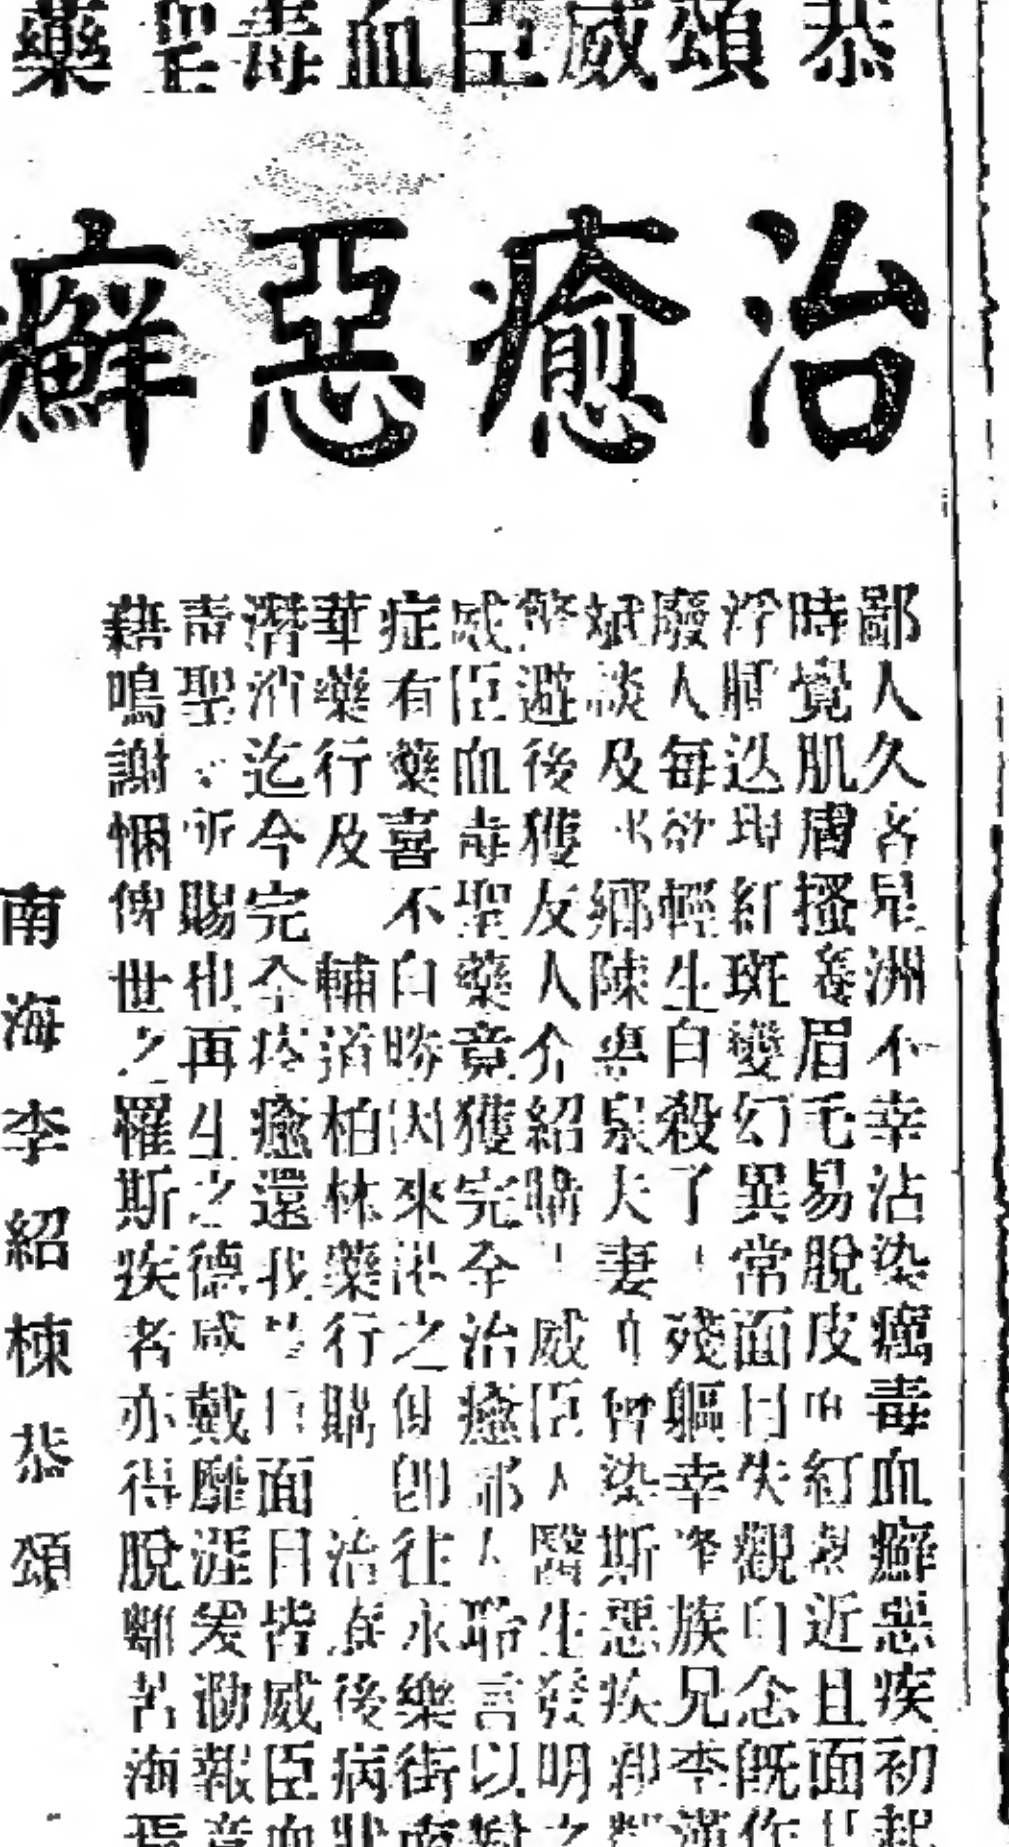 恭頌威臣血毒聖藥
治癒惡癬
鄙人久客星洲不幸沾染癘毒血癬惡疾初起
時覺肌膚搔養眉毛易脫皮肉紅裂近且面
浮腫迭現紅斑變幻異常面目失觀自念既作
廢人每欲輕生自殺了此殘軀幸族兄李漢
斌談及鄉陳與泉夫妻曾染斯惡疾
避後獲友人介紹購威臣人醫生發明之
威臣血毒聖藥竟獲完全治癒鄙人聆言以對
症有藥喜不自勝因來港之便即往永樂街南
華藥行及輔道柏林藥行購治產後病狀
潛消迄今完全痊癒還我面目皆威臣血
毒聖所賜也再生之德咸戴靡涯爰泐報章
藉鳴謝悃俾世之罹斯疾者亦得脫離苦海焉
南海李紹棟恭頌